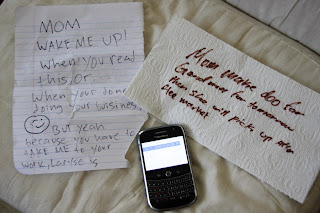 MOM
WAKE ME UP!
when you read
this, or..
when your done
doing your business
But yeah
because you have to
TAKE ME to your
work,
Mom make 600 for
for tomorrow
she will pick up after